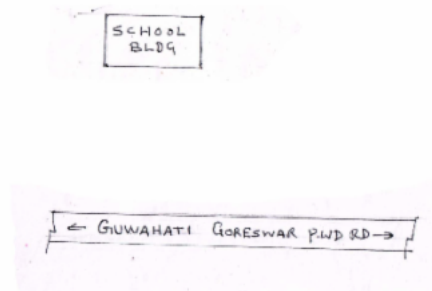 SCHOOL
BLDG
← GUWAHATI GORESWAR P.W.D RD →